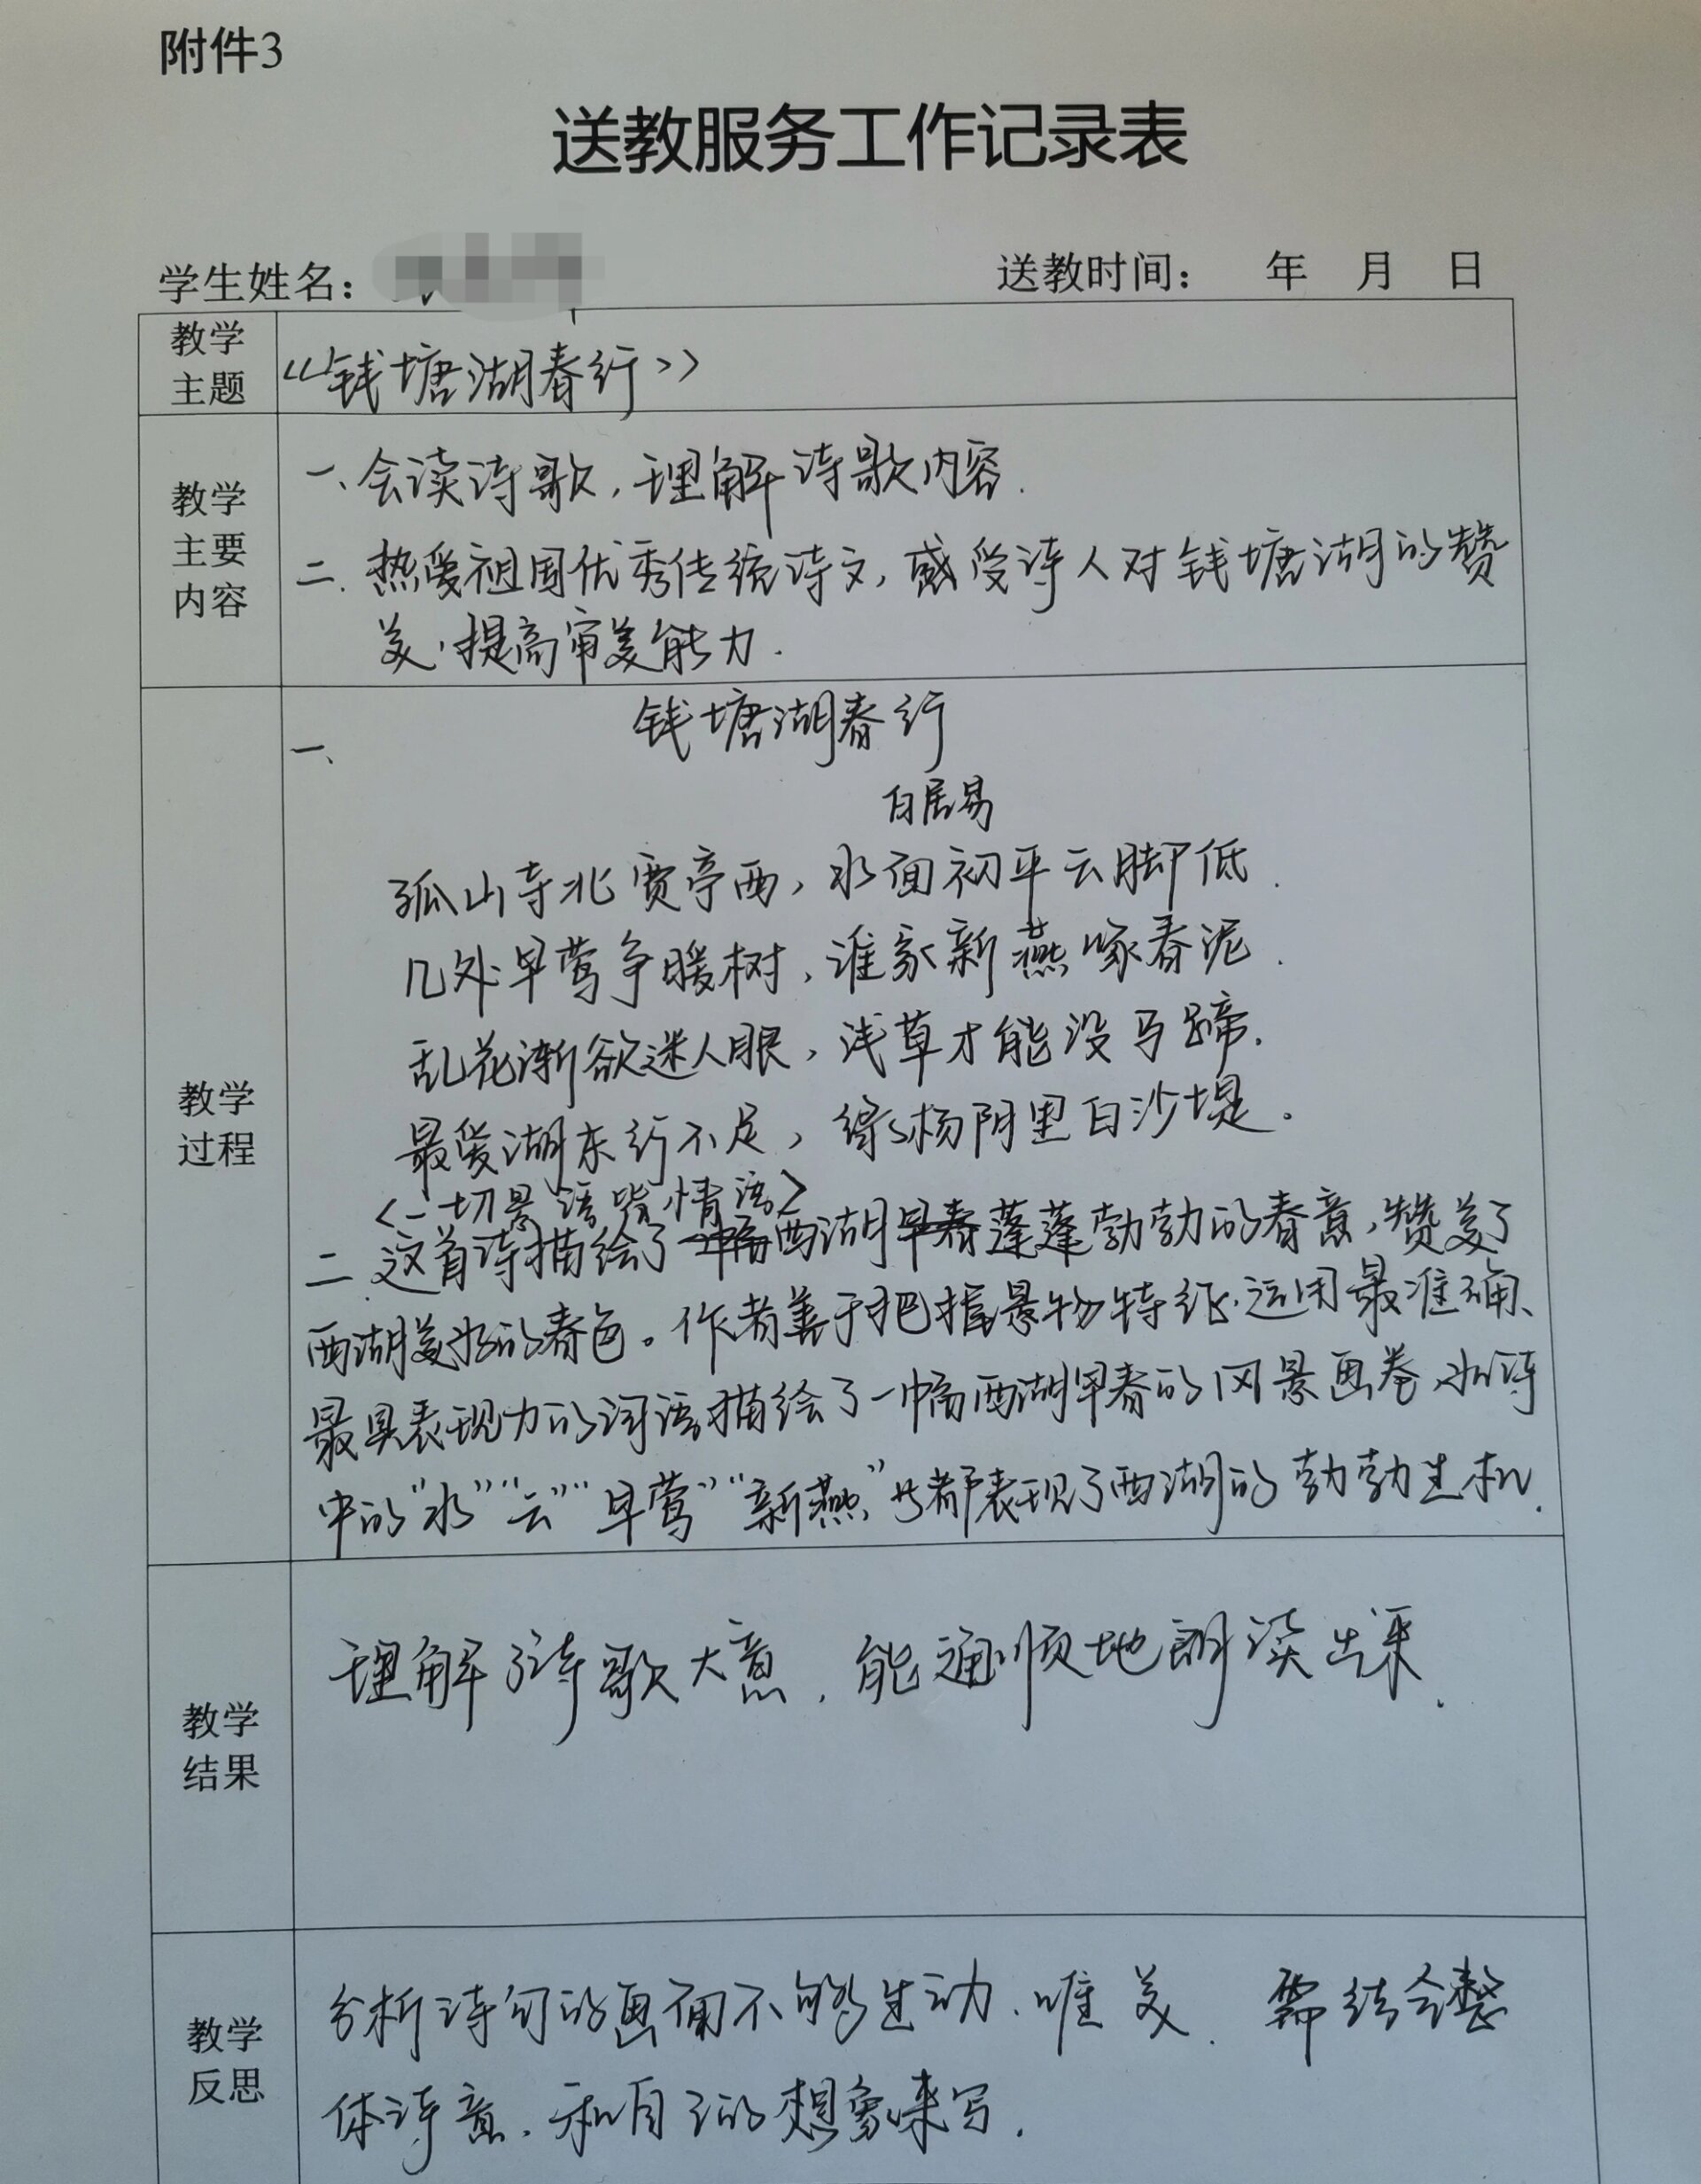 附件3
送教服务工作记录表
学生姓名：
送教时间： 年 月 日
教学
主题
《钱塘湖春行》
教学
主要
内容
一、会读诗歌，理解诗歌内容.
二.热爱祖国优秀传统诗文,感受诗人对钱塘湖的赞
美.提高审美能力.
教学
过程
一、 钱塘湖春行
白居易
孤山寺北贾亭西，水面初平云脚低.
几处早莺争暖树，谁家新燕啄春泥.
乱花渐欲迷人眼，浅草才能没马蹄.
最爱湖东行不足，绿杨阴里白沙堤.
<一切景语皆情语>
二 这首诗描绘了西湖蓬蓬勃勃的春意,赞美了
西湖美好的春色。作者善于把握景物特征.运用最准确、
最具表现力的词语描绘了一幅西湖早春的风景画卷,如诗
中的“水”“云”“早莺”“新燕”等都表现了西湖的勃勃生机.
教学
结果
理解了诗歌大意，能通顺地朗读出来.
教学
反思
分析诗句的画面不够生动、唯美. 需结合整
体诗意，和自己的想象来写.